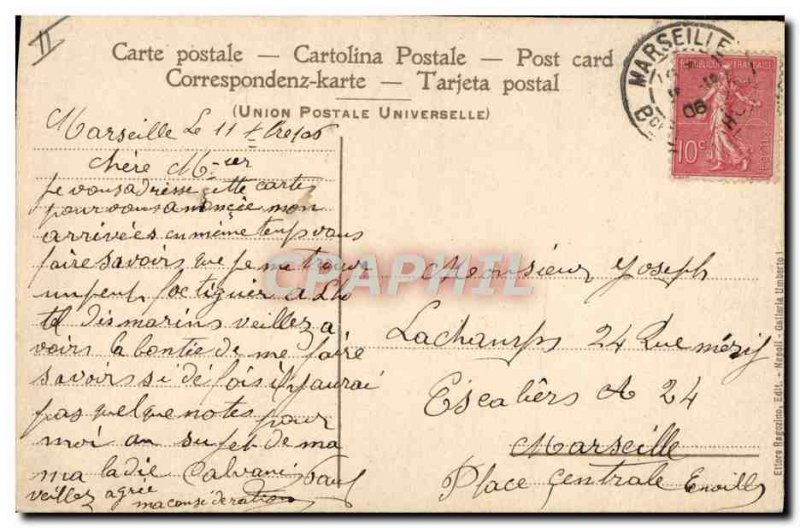 II
Carte postale — Cartolina Postale — Post card
Correspondenz-karte — Tarjeta postal
(UNION POSTALE UNIVERSELLE)
MARSEILLE
06
REPUBLIQUE FRANÇAISE
10c
Marseille Le 11 Xbre 06
Chère Mr
Je vous adresse cette cartes
pour vous anoncée mon
arrivées en même temps vous
faire savoirs que je me trouve
un peut fatiguer a L'ho
tel dis marins veillez a
voirs la bontie de me faire
savoirs si dé fois il y aurai
pas quelque notes pour
moi au sujet de ma
ma ladie Calvani Paul
veillez agrée
ma considération
CPAPHIL
Monsieur Joseph
Lachamps 24 Rue méry
Escaliers A 24
Marseille
Place Centrale
Ettore Ragozino, Edit. - Napoli - Galleria Umberto I